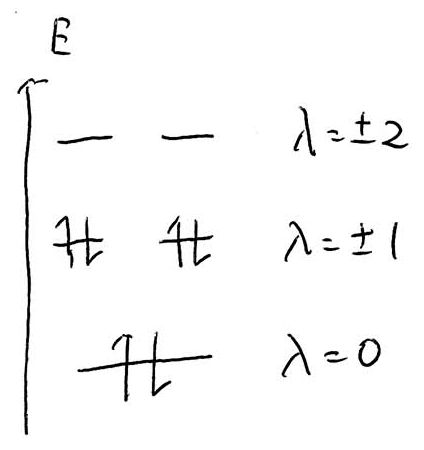 E
λ=±2
λ=±1
λ=0